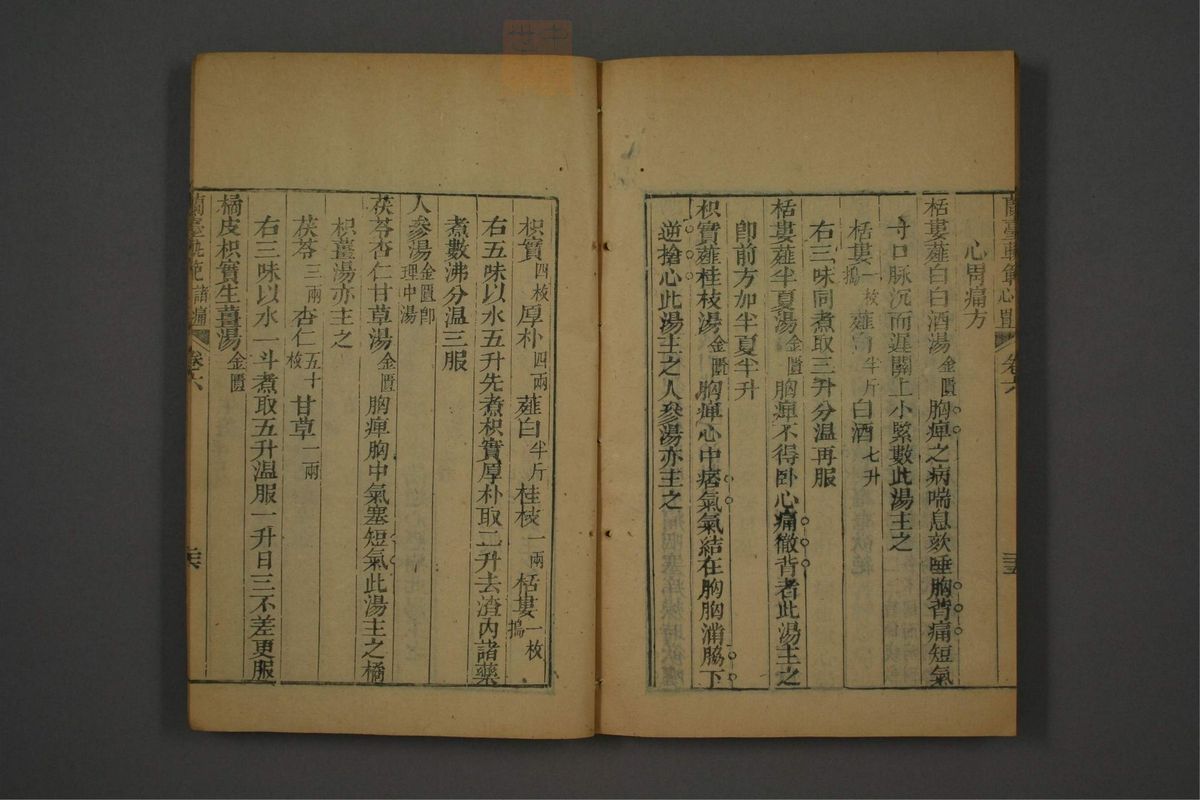 蘭臺軌範 心胃 卷六 三五
心胃痛方
栝蔞薤白白酒湯金匱胸痺之病喘息欬唾胸背痛短氣
寸口脉沉而遲關上小緊數此湯主之
栝蔞一枚搗薤白半斤白酒七升
右三味同煮取三升分温再服
栝蔞薤半夏湯金匱胸痺不得卧心痛徹背者此湯主之
卽前方加半夏半升
枳實薤桂枝湯金匱胸痺心中痞氣氣結在胸胸滿脇下
逆搶心此湯主之人參湯亦主之
枳實四枚厚朴四兩薤白半斤桂枝一兩栝蔞一枚搗
右五味以水五升先煮枳實厚朴取二升去渣內諸藥
煮數沸分温三服
人參湯金匱卽理中湯
茯苓杏仁甘草湯金匱胸痺胸中氣塞短氣此湯主之橘
枳薑湯亦主之
茯苓三兩杏仁五十枚甘草一兩
右三味以水一斗煮取五升温服一升日三不差更服
橘皮枳實生薑湯金匱
蘭臺軌範 諸痛 卷六 三六